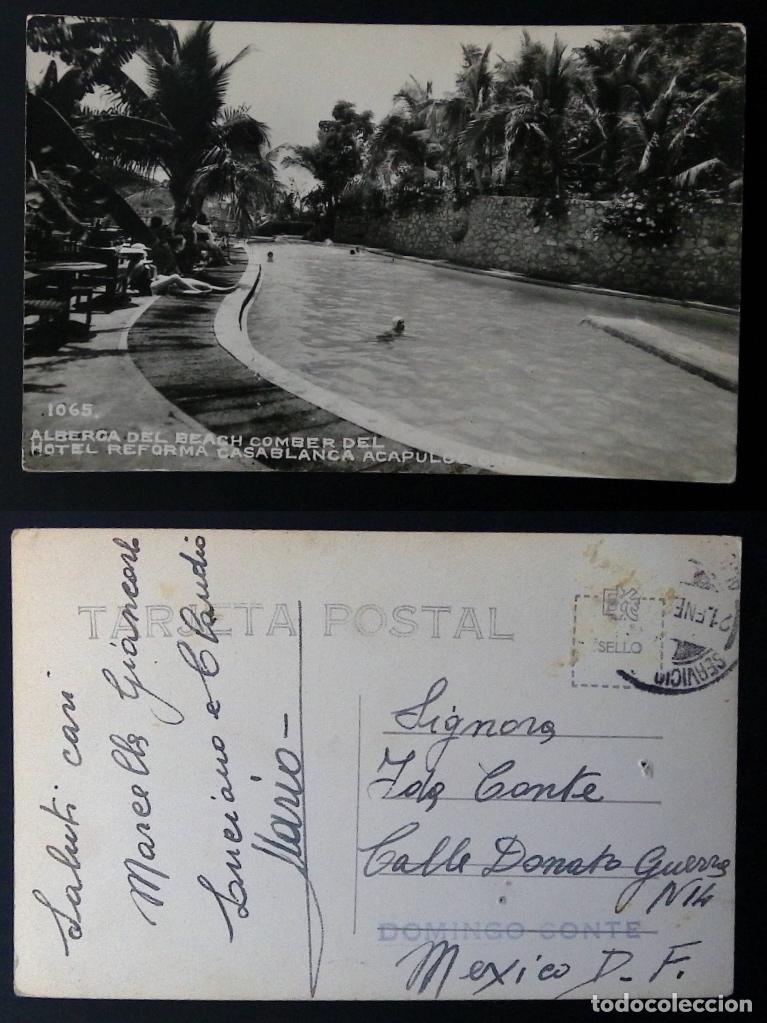 1065.
ALBERCA DEL BEACH COMBER DEL
HOTEL REFORMA CASABLANCA ACAPULCO
TARJETA POSTAL
SELLO
21.ENE
SERVICIO
Saluti cari
Marcella Giancarlo
Luciano e Claudio
Mario-
Signora
Ida Conte
Calle Donato Guerra
N14
DOMINGO CONTE
Mexico D.F.
todocoleccion